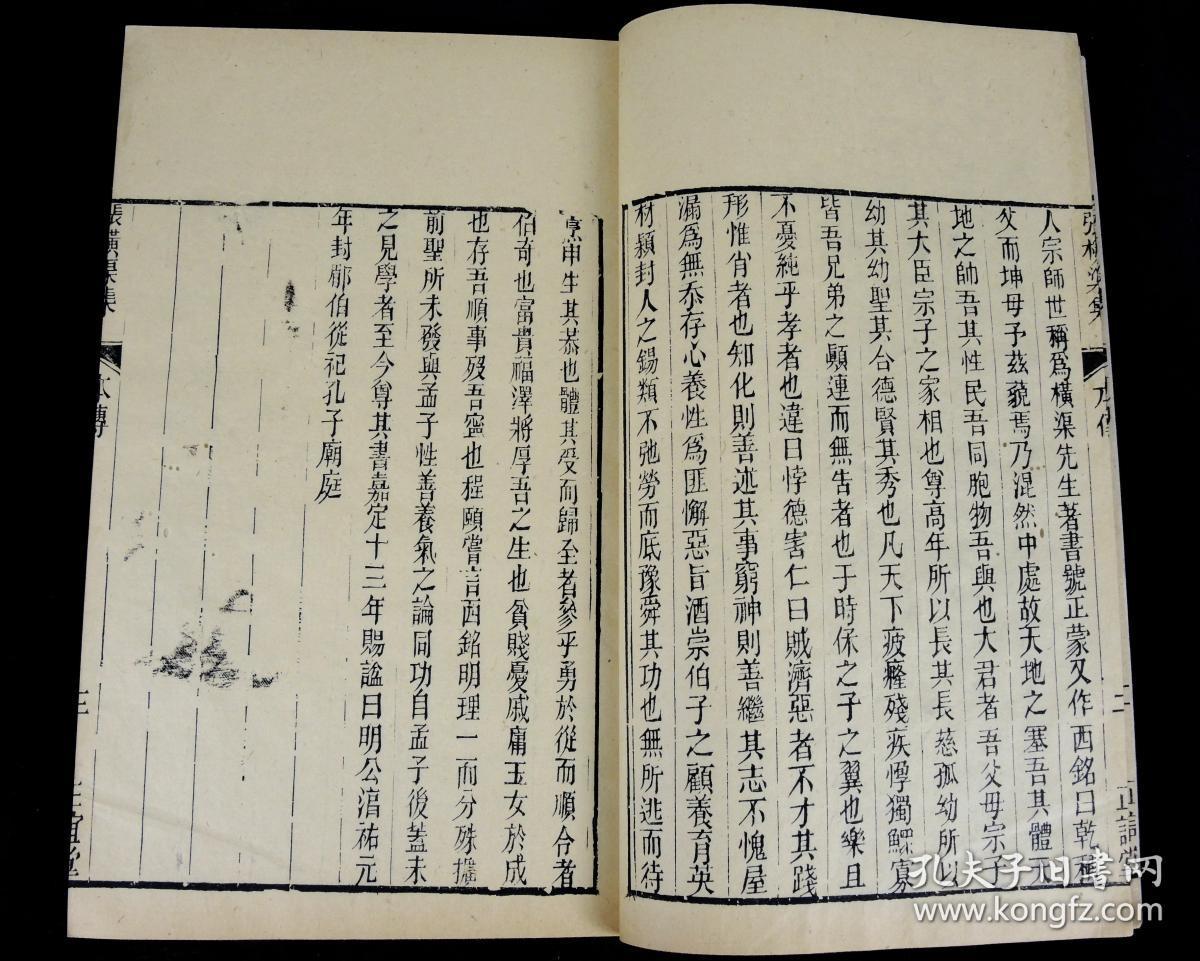 張橫渠集
本傳
二
正誼堂
人宗師世稱爲橫渠先生著書號正蒙又作西銘曰乾稱
父而坤母予茲藐焉乃混然中處故天地之塞吾其體天
地之帥吾其性民吾同胞物吾與也大君者吾父母宗子
其大臣宗子之家相也尊高年所以長其長慈孤幼所以
幼其幼聖其合德賢其秀也凡天下疲癃殘疾惸獨鰥寡
皆吾兄弟之顚連而無告者也于時保之子之翼也樂且
不憂純乎孝者也違曰悖德害仁曰賊濟惡者不才其踐
形惟肖者也知化則善述其事窮神則善繼其志不愧屋
漏爲無忝存心養性爲匪懈惡旨酒崇伯子之顧養育英
材潁封人之錫類不弛勞而底豫舜其功也無所逃而待
烹申生其恭也體其受而歸至者參乎勇於從而順合者
伯奇也富貴福澤將厚吾之生也貧賤憂戚庸玉女於成
也存吾順事歿吾寧也程頤嘗言西銘明理一而分殊擴
前聖所未發與孟子性善養氣之論同功自孟子後蓋未
之見學者至今尊其書嘉定十三年賜諡曰明公淳祐元
年封郿伯從祀孔子廟庭
張橫渠集
本傳
三
正誼堂
孔夫子旧書网
www.kongfz.com